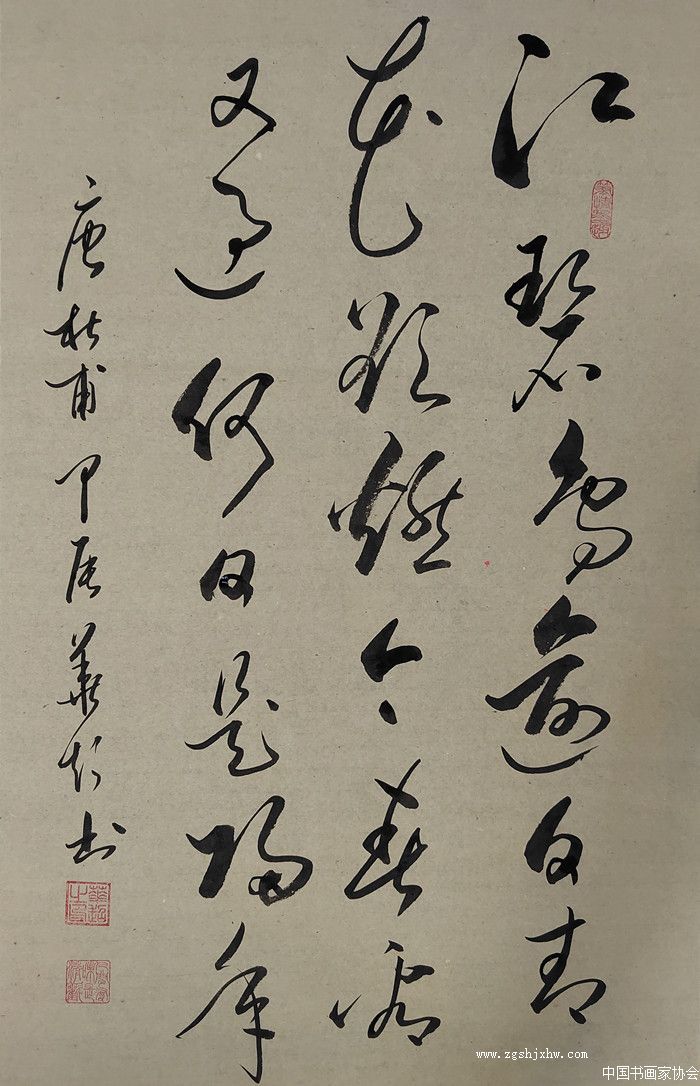 江碧鳥逾白青
花欲燃今春看
又過何日是歸年
唐杜甫甲辰華超书
www.zgshjxhw.com
中国书画家协会